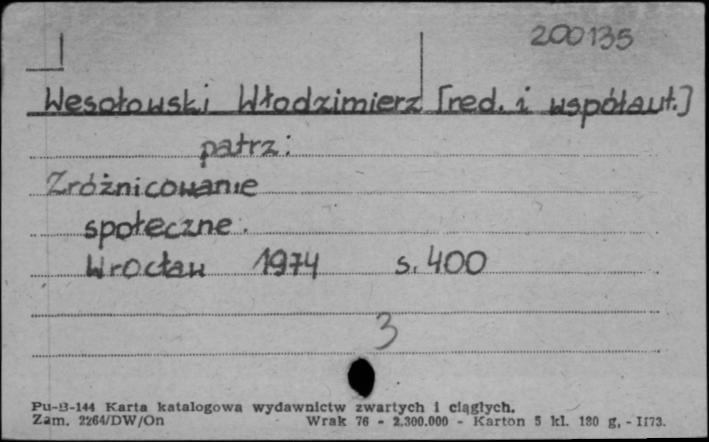 200135
Wesołowski Włodzimierz [red. i współaut.]
patrz:
Zróżnicowanie
społeczne.
Wrocław 1974 s. 400
3
Pu-B-144 Karta katalogowa wydawnictw zwartych i ciągłych.
Zam. 2264/DW/On Wrak 76 - 2.300.000 - Karton 5 kl. 180 g, - II73.